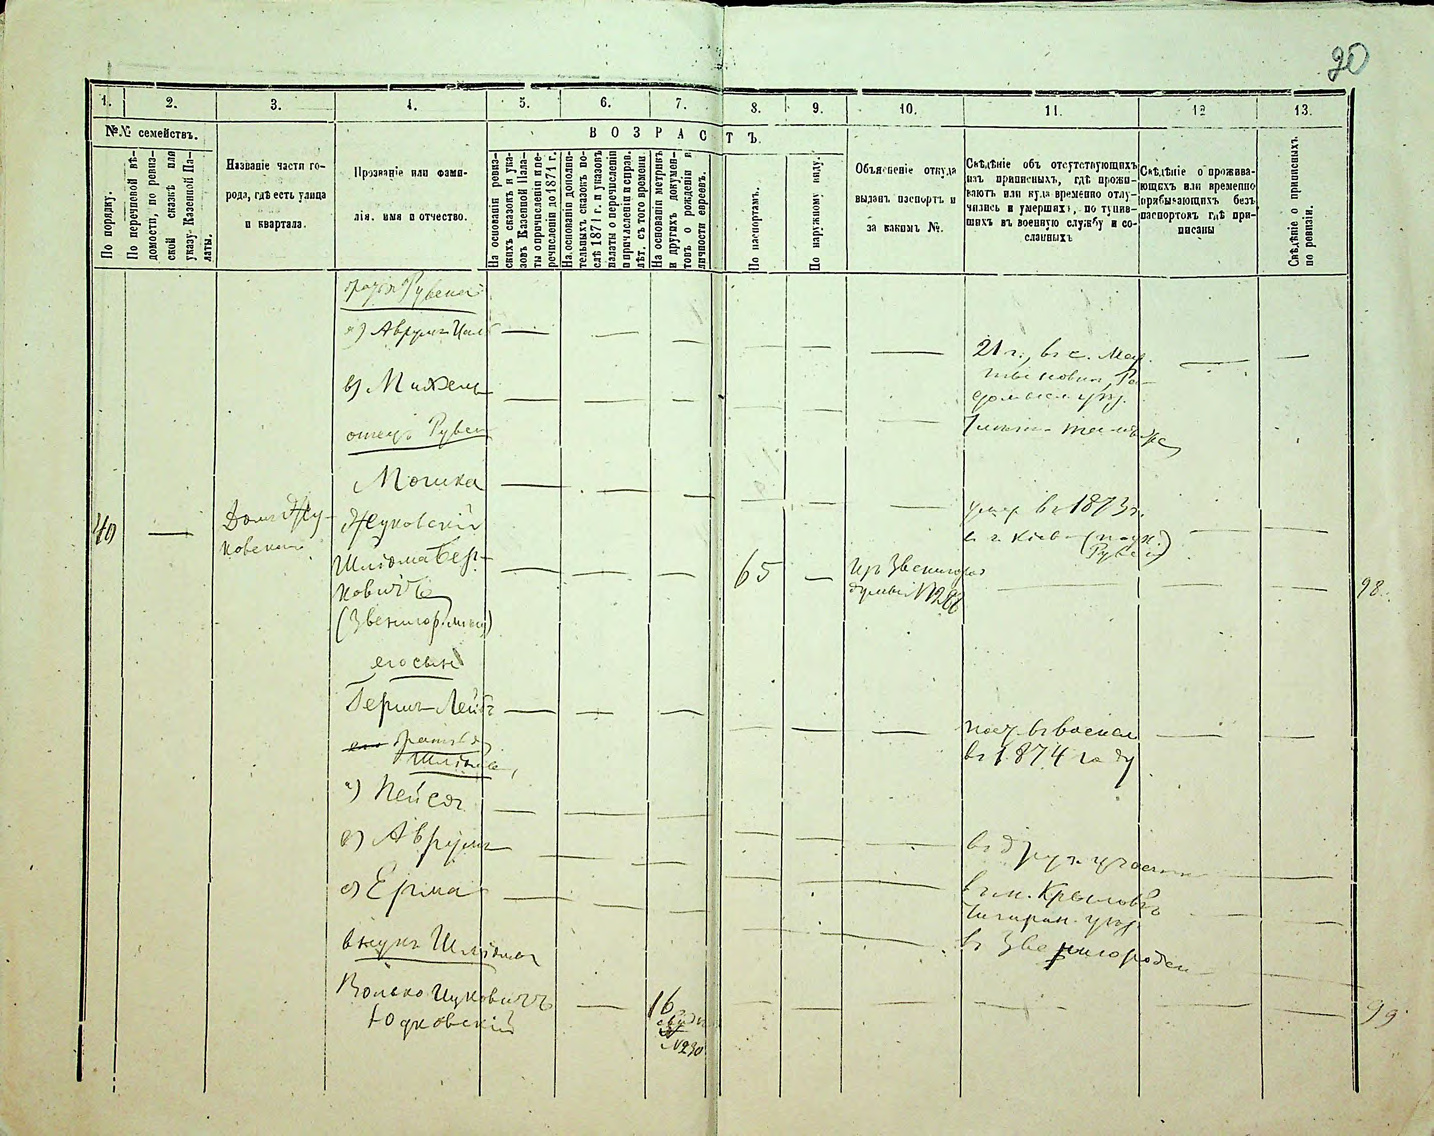 20
1.
2.
3.
4.
5.
6.
7.
8.
9.
10.
11.
12
13.
№№ семействъ.
ВОЗРАСТЪ.
По порядку.
По перечневой вѣ-
домости, по ревиз-
ской сказкѣ или
указу Казенной Па-
латы.
Названіе части го-
рода, гдѣ есть улица
и квартала.
Прозваніе или фами-
лія, имя и отчество.
На основаніи ревиз-
скихъ сказокъ и ука-
зовъ Казенной Пала-
ты о причисленіи и пе-
речисленіи до 1871 г.
На основаніи дополни-
тельныхъ сказокъ по-
слѣ 1871 г. и указовъ
палаты о перечисленіи
и причисленіи и справ.
лѣт. съ того времени.
На основаніи метрикъ
и другихъ докумен-
товъ о рожденіи и
личности евреевъ.
По паспортамъ.
По наружному виду.
Объясненіе откуда
выданъ паспортъ и
за какимъ №.
Свѣдѣніе объ отсутствующихъ
изъ приписныхъ, гдѣ прожи-
ваютъ или куда временно отлу-
чились и умершихъ, по тупив-
шихъ въ военную службу и со-
сланныхъ
Свѣдѣніе о прожива-
ющихъ или временно
прибывающихъ безъ
паспортовъ гдѣ при-
писаны
Свѣдѣніе о приписныхъ
по ревизіи.
братья Рувена
а) Аврумъ Ицк
21 г., въ с. Мар
уѣз.
в) Михель
отецъ Рувен
Мошка
умер. въ 1873 г.
в г. Кіев
40 — Домъ Жу-
ковскаго
Жуковскій
Шліома Бер-
ковичъ
(Звенигор. мѣщ)
65
Изъ Звенигород
думы №286
98.
его сынъ
Герш-Лейб
пост. въ воен сл
въ 1874 году
его братья
Шліомы,
а) Пейсах
в друг. участк
в) Аврумъ
в м. Крыловѣ
Чигирин. уѣз.
с) Ерма
в Звенигородск
внукъ Шліомы
Волько Ицковичъ
Юдковскій
16
свид
№230
99.